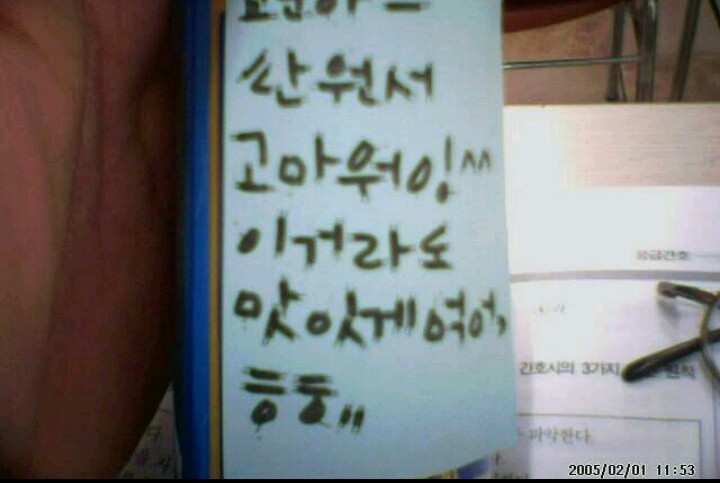 싼 원서
고마워잉^^
이거라도
맛잇게 먹어,
흥흥,,
응급간호
간호시의 3가지 원칙
파악한다.
2005/02/01 11:53